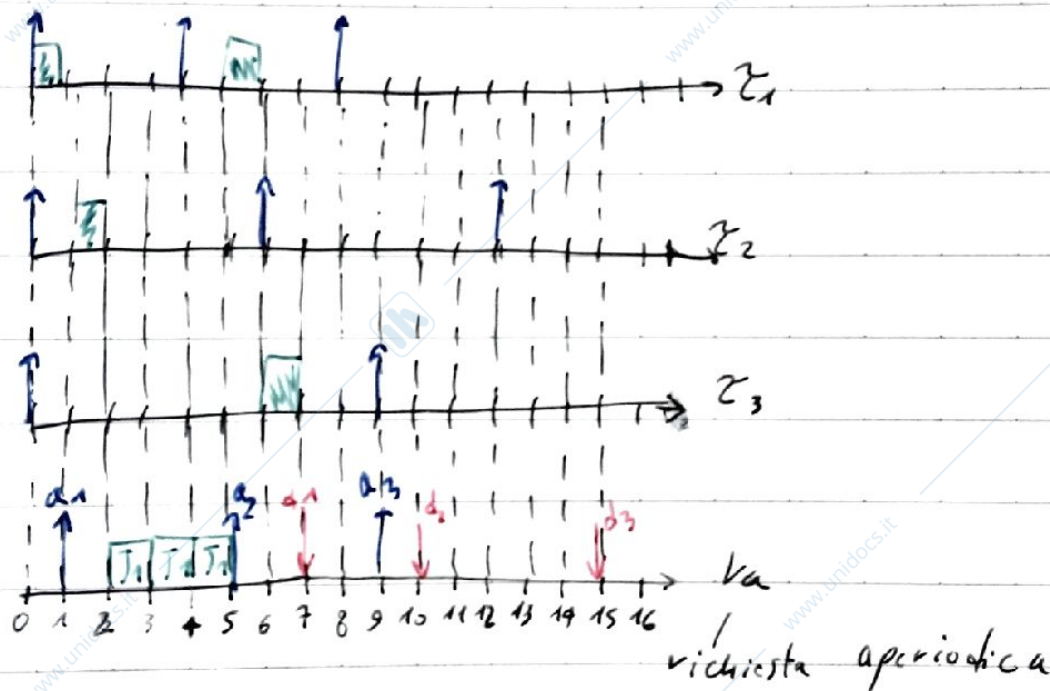 τ1
τ2
τ3
a1 a2 d1 a3 d2 d3
J1 J1 J1
ra
0 1 2 3 4 5 6 7 8 9 10 11 12 13 14 15 16
richiesta aperiodica
www.unidocs.it
www.unidocs.it